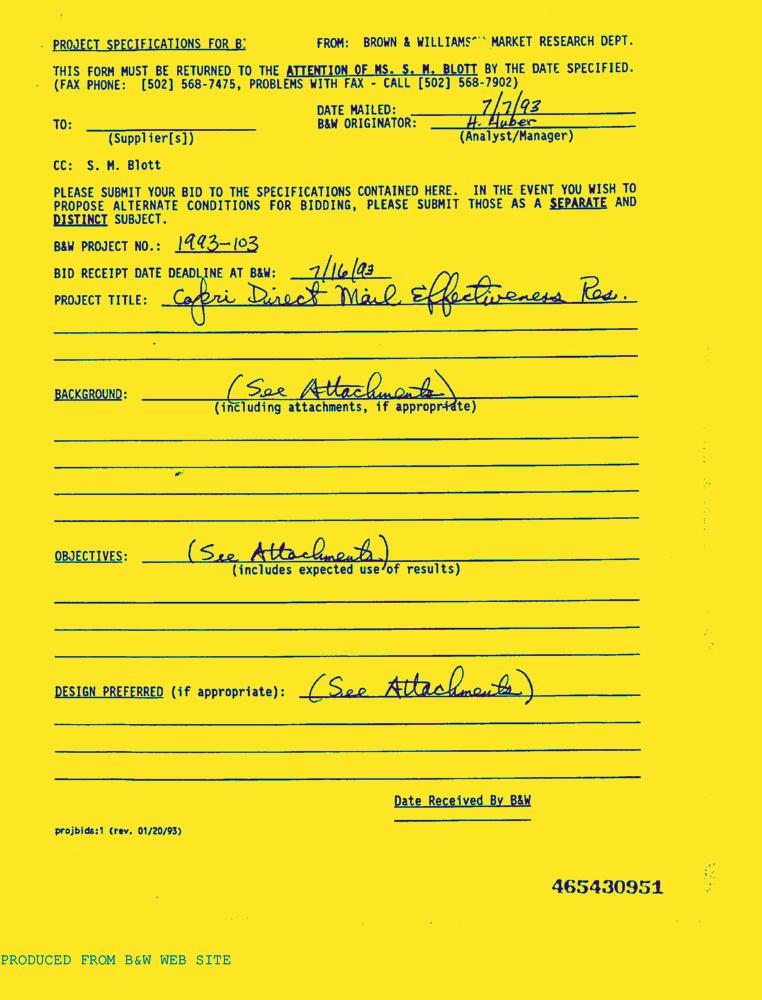 PROJECT SPECIFICATIONS FOR B: FROM: BROWN & WILLIAMS MARKET RESEARCH DEPT.
THIS FORM MUST BE RETURNED TO THE ATTENTION OF MS. S. M. BLOTT BY THE DATE SPECIFIED.
(FAX PHONE: [502] 568-7475, PROBLEMS WITH FAX - CALL [502] 568-7902)
DATE MAILED: 7/7/93
TO: B&W ORIGINATOR: H. Huber
(Supplier[s]) (Analyst/Manager)
CC: S. M. Blott
PLEASE SUBMIT YOUR BID TO THE SPECIFICATIONS CONTAINED HERE. IN THE EVENT YOU WISH TO
PROPOSE ALTERNATE CONDITIONS FOR BIDDING, PLEASE SUBMIT THOSE AS A SEPARATE AND
DISTINCT SUBJECT.
B&W PROJECT NO.: 1993-103
BID RECEIPT DATE DEADLINE AT B&W: 7/16/93
PROJECT TITLE: Capri Direct Mail Effectiveness Res.
BACKGROUND: (See Attachments)
(including attachments, if appropriate)
OBJECTIVES: (See Attachments)
(includes expected use of results)
DESIGN PREFERRED (if appropriate): (See Attachments)
Date Received By B&W
projbids:1 (rev. 01/20/93)
465430951
PRODUCED FROM B&W WEB SITE